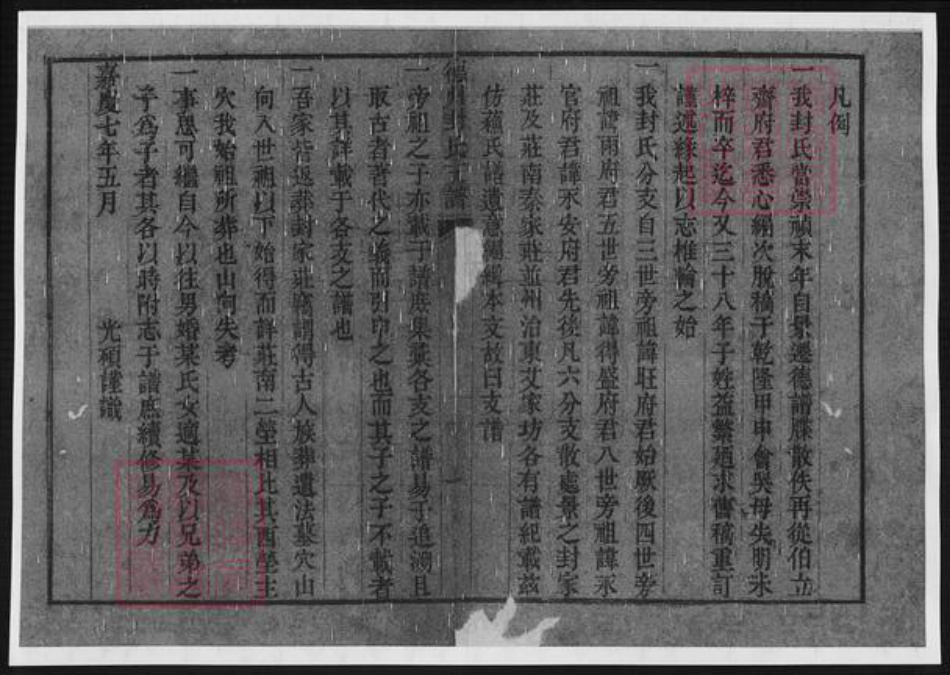 凡例
一我封氏當崇禎末年自景遷德譜牒散佚再從伯立
齋府君悉心編次脫稿于乾隆甲申會吳母失明未
梓而卒迄今又三十八年子姓益繁廼求舊稿重訂
謹述緣起以志椎輪之始
一我封氏分支自三世旁祖諱旺府君始厥後四世旁
祖諱雨府君五世旁祖諱得盛府君八世旁祖諱承
官府君諱承安府君先後凡六分支散處景之封家
莊及莊南秦家莊並州治東艾家坊各有譜紀載茲
仿蘇氏譜遺意編輯本支故曰支譜
德州封氏支譜
一帝祖之子亦載于譜庶集彙各支之譜易于追溯且
取古者著代之義而引申之也而其子之子不載者
以其詳載于各支之譜也
一吾家皆返葬封家莊竊謂得古人族葬遺法墓穴山
向入世祖以下始得而詳莊南二塋相比其西塋主
穴我始祖所葬也山向失考
一事思可繼自今以往男婚某氏女適某及以兄弟之
子為子者其各以時附志于譜庶續修易為力
嘉慶七年五月 光碩謹識